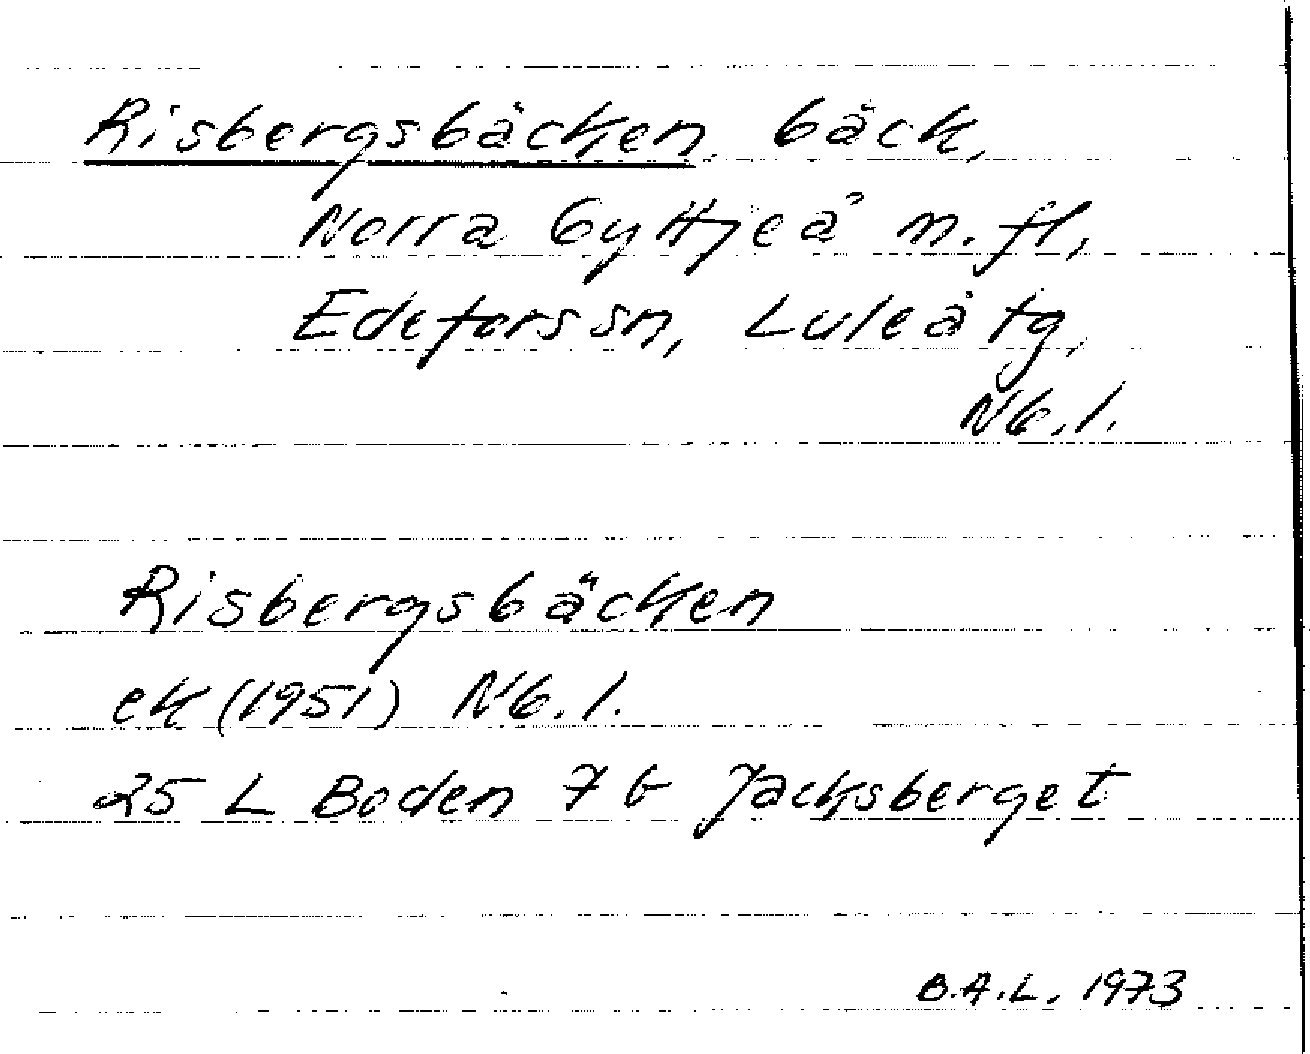 Risbergsbäcken, bäck,
Norra Gyttjeå m. fl.,
Edefors sn, Luleå tg,
Nb. l.
Risbergsbäcken
ek (1951) Nb. l.
25 L Boden 7 b Jacksberget
B.A.L. 1973